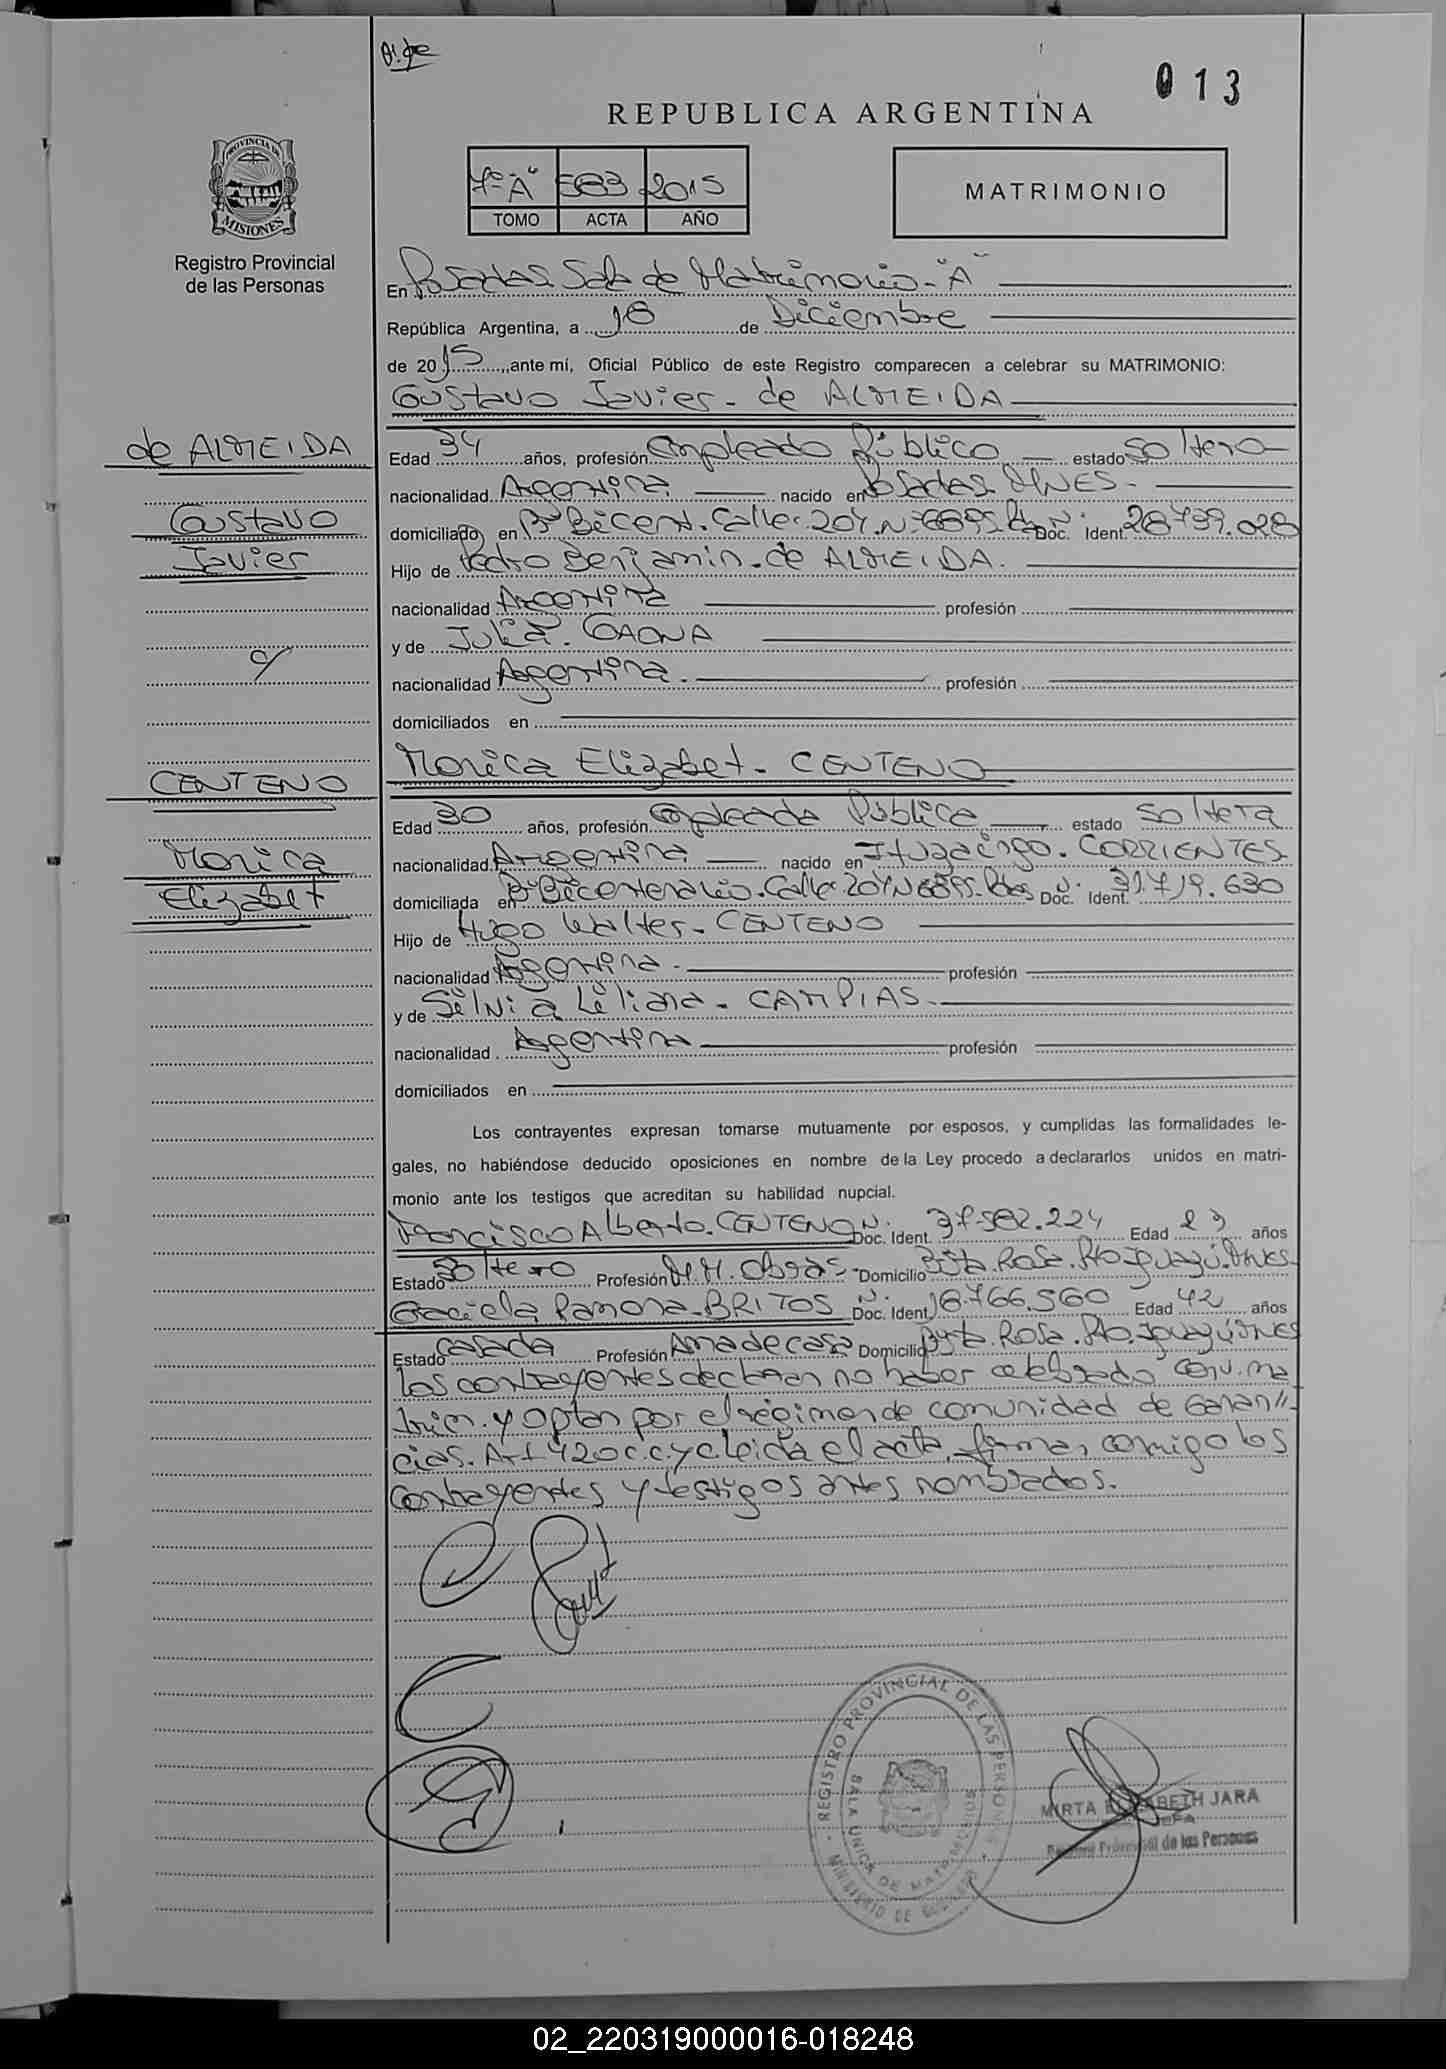 013
REPUBLICA ARGENTINA
PROVINCIA DE
MISIONES
Registro Provincial
de las Personas
7º "A" 583 2015
TOMO ACTA AÑO
MATRIMONIO
En Posadas. Sala de Matrimonio - "A"
República Argentina, a 18 de Diciembre
de 2015, ante mí, Oficial Público de este Registro comparecen a celebrar su MATRIMONIO:
Gustavo Javier - de ALMEIDA
de ALMEIDA
Gustavo
Javier
Edad 34 años, profesión Empleado Público estado soltero
nacionalidad Argentina nacido en Posadas. MNES.
domiciliado en Bº Bicent. Calle 204 Nº 6895. Pdas Doc. Ident. 28.739.028
Hijo de Pedro Benjamin - de ALMEIDA.
nacionalidad Argentina profesión
y de Julia. GAONA
c/
nacionalidad Argentina. profesión
domiciliados en
Monica Elizabet - CENTENO
CENTENO
Monica
Elizabet
Edad 30 años, profesión Empleada Pública estado soltera
nacionalidad Argentina nacido en Ituzaingo. CORRIENTES
domiciliada en Bº Bicentenario. Calle 204 Nº 6895. Pdas Doc. Ident. 31.719.630
Hijo de Hugo Walter - CENTENO
nacionalidad Argentina. profesión
y de Silvia Liliana - CAMPIAS.
nacionalidad Argentina profesión
domiciliados en
Los contrayentes expresan tomarse mutuamente por esposos, y cumplidas las formalidades le-
gales, no habiéndose deducido oposiciones en nombre de la Ley procedo a declararlos unidos en matri-
monio ante los testigos que acreditan su habilidad nupcial.
Francisco Alberto. CENTENO Doc. Ident. 37.582.224 Edad 23 años
Estado Soltero Profesión M.M. Obras - Domicilio Bº Sta. Rosa. Pto. Iguazú. Mnes.
Graciela Ramona - BRITOS Doc. Ident. 18.766.560 Edad 42 años
Estado Casada Profesión Ama de casa Domicilio Bº Sta. Rosa. Pto. Iguazú Mnes
Los contrayentes declaran no haber celebrado conv. ma
trim. y optan por el régimen de comunidad de Ganan//
cias. Art 420 c.c. y c. leída el acta, firman conmigo los
Contrayentes y testigos antes nombrados.
REGISTRO PROVINCIAL DE LAS PERSONAS
SALA UNICA DE MATRIMONIOS
MINISTERIO DE GOBIERNO
MIRTA ELIZABETH JARA
JEFA
Registro Provincial de las Personas
02_220319000016-018248